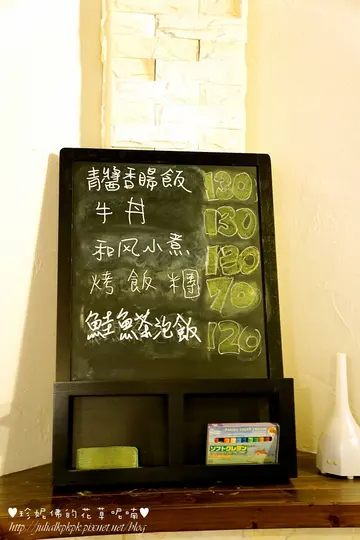 青醬香腸飯 130
牛丼 130
和风小煮 130
烤飯糰 70
鮭魚茶泡飯 120
ソフトクレヨン
♥珍妮佛的花草呢喃♥
http://julialkpkpk.pixnet.net/blog